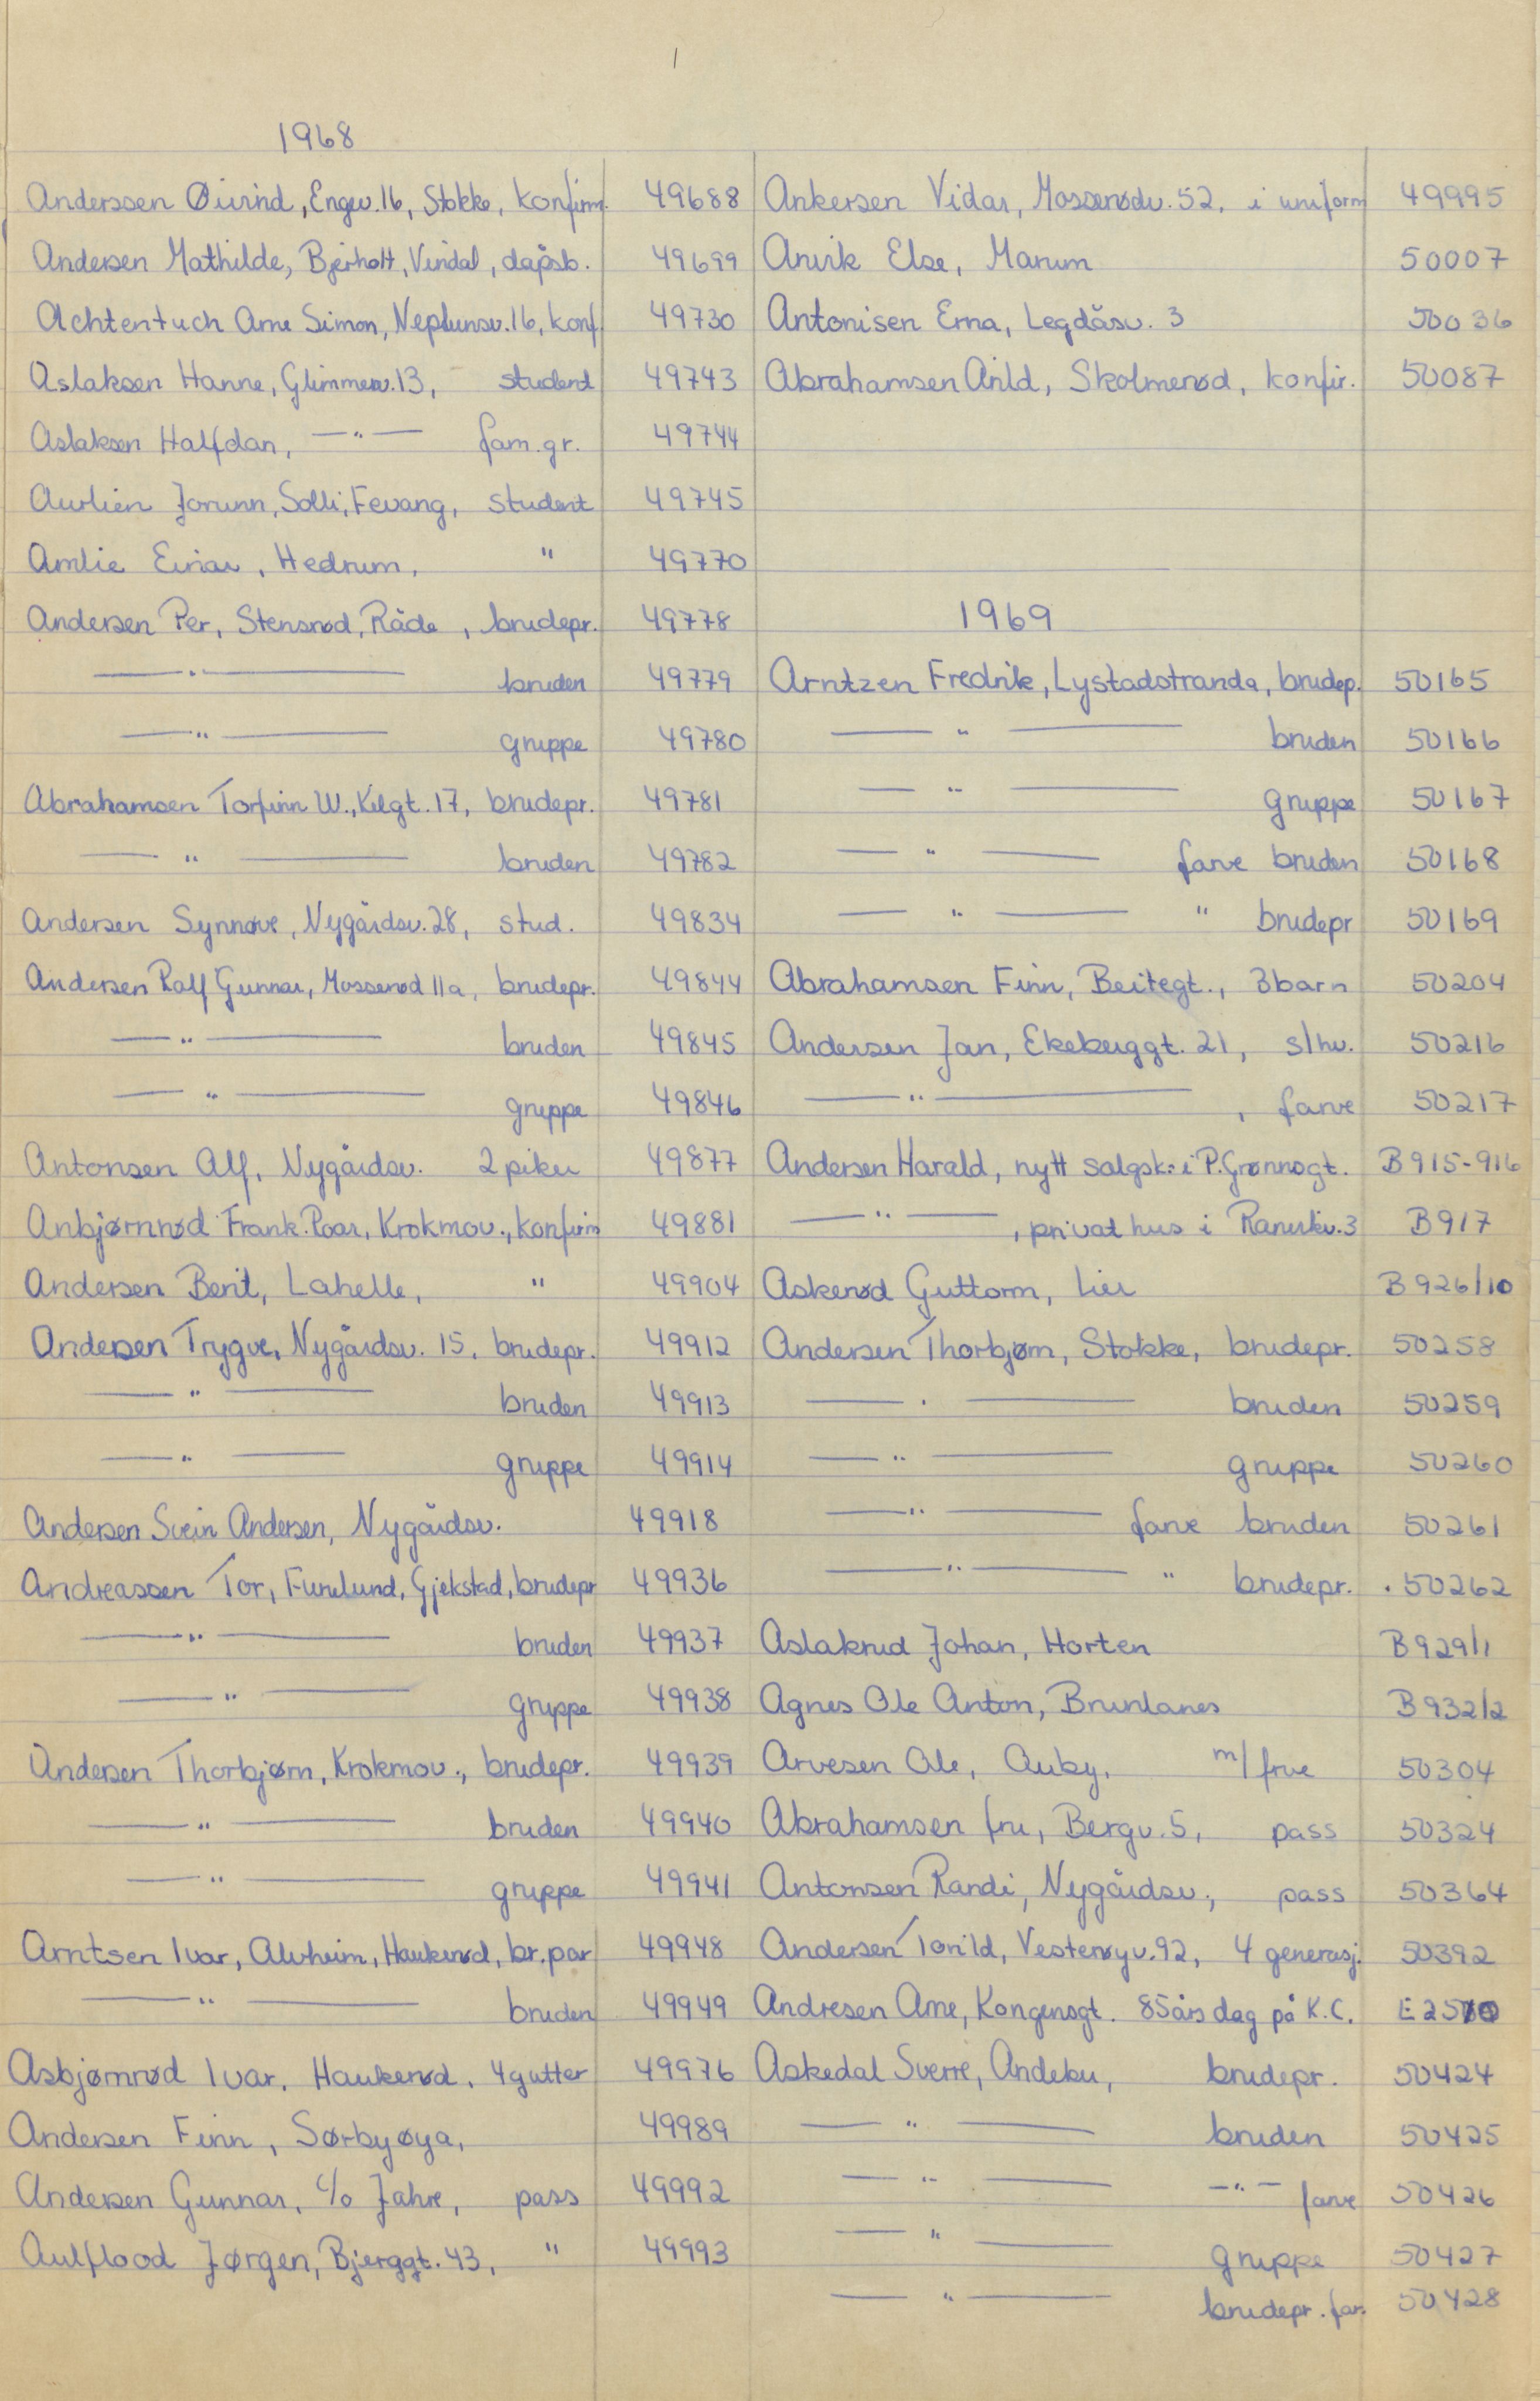 1968
Anderssen Øivind, Engev. 16, Stokke, konfirm. 49688
Andersen Mathilde, Bjerholt, Vindal, dåpsb. 49699
Achtentuch Arne Simon, Neptunsv. 16, konf. 49730
Aslaksen Hanne, Glimmerv. 13, student 49743
Aslaksen Halfdan, —"— fam.gr. 49744
Aurlien Jorunn, Solli, Fevang, student 49745
Amlie Einar, Hedrum, " 49770
Andersen Per, Stensrød, Råde, brudepr. 49778
—"— bruden 49779
—"— gruppe 49780
Abrahamsen Torfinn W., Kilgt. 17, brudepr. 49781
—"— bruden 49782
Andersen Synnøve, Nygårdsv. 28, stud. 49834
Andersen Ralf Gunnar, Mosserød 11a, brudepr. 49844
—"— bruden 49845
—"— gruppe 49846
Antonsen Alf, Nygårdsv. 2 piker 49877
Anbjørnrød Frank. Roar, Krokmov., konfirm 49881
Andersen Berit, Lahelle, " 49904
Andersen Trygve, Nygårdsv. 15, brudepr. 49912
—"— bruden 49913
—"— gruppe 49914
Andersen Svein Andersen, Nygårdsv. 49918
Andreassen Tor, Furulund, Gjekstad, brudepr 49936
—"— bruden 49937
—"— gruppe 49938
Andersen Thorbjørn, Krokmov., brudepr. 49939
—"— bruden 49940
—"— gruppe 49941
Arntsen Ivar, Alvheim, Haukerød, br.par 49948
—"— bruden 49949
Asbjørnrød Ivar, Haukerød, 4 gutter 49976
Andersen Finn, Sørbyøya, 49989
Andersen Gunnar, c/o Jahre, pass 49992
Aulflood Jørgen, Bjerggt. 43, " 49993
Ankersen Vidar, Mosserødv. 52, i uniform 49995
Anvik Else, Marum 50007
Antonisen Erna, Legdåsv. 3 50036
Abrahamsen Arild, Skolmerød, konfir. 50087
1969
Arntzen Fredrik, Lystadstranda, brudep. 50165
—"— bruden 50166
—"— gruppe 50167
—"— farve bruden 50168
—"— " brudepr 50169
Abrahamsen Finn, Beitegt., 3 barn 50204
Andersen Jan, Ekeberggt. 21, s/hv. 50216
—"—, farve 50217
Andersen Harald, nytt salgsk. i P. Grønnsgt. B 915-916
—"—, privat hus i Ranvikv. 3 B 917
Askerød Guttorm, Lier B 926/10
Andersen Thorbjørn, Stokke, brudepr. 50258
—"— bruden 50259
—"— gruppe 50260
—"— farve bruden 50261
—"— " brudepr. 50262
Aslakrud Johan, Horten B 929/1
Agnes Ole Anton, Brunlanes B 932/2
Arvesen Ole, Auby, m/frue 50304
Abrahamsen fru, Bergv. 5, pass 50324
Antonsen Randi, Nygårdsv., pass 50364
Andersen Torild, Vesterøyv. 92, 4 generasj. 50392
Andresen Arne, Kongensgt. 85 års dag på K.C. E 2510
Askedal Sverre, Andebu, brudepr. 50424
—"— bruden 50425
—"— —"— farve 50426
—"— gruppe 50427
—"— brudepr. far. 50428